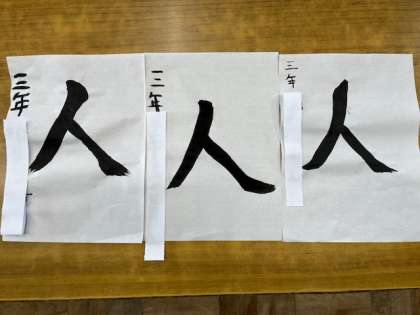 三年
人
三年
人
三年
人